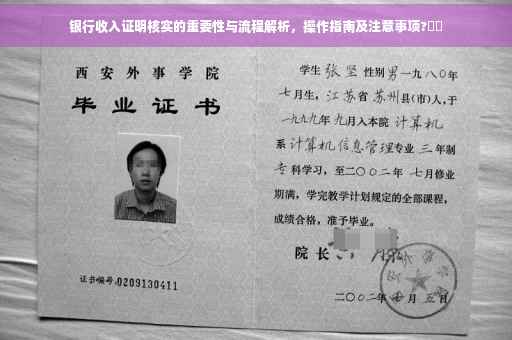 银行收入证明核实的重要性与流程解析，操作指南及注意事项?
西安外事学院
毕业证书
证书编号:0209130411
学生张坚性别男一九八〇年
七月生，江苏省苏州县(市)人,于
一九九九年九月入本院计算机
系计算机信息管理专业三年制
专科学习，至二〇〇二年七月修业
期满，学完教学计划规定的全部课程，
成绩合格，准予毕业。
院长
二〇〇二年 月五日